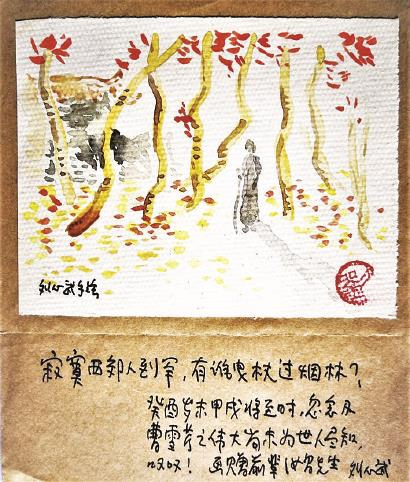 刘心武手绘
寂寞西郊人到罕,有谁曳杖过烟林?
癸酉岁末甲戌将至时,忽念及
曹雪芹之伟大尚未为世人尽知,
叹叹! 画赠前辈汝昌先生 刘心武